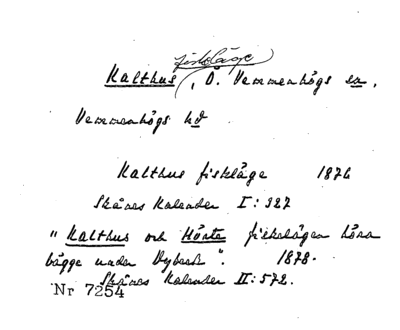 fiskläge
Kalthus, Ö. Vemmenhögs sn,
Vemmenhögs hd
Kalthus fiskläge 1876
Skånes Kalender I: 327
" Kalthus och Hörte fiskelägen höra
bägge under Dybeck". 1878.
Skånes Kalender II: 572.
Nr 7254